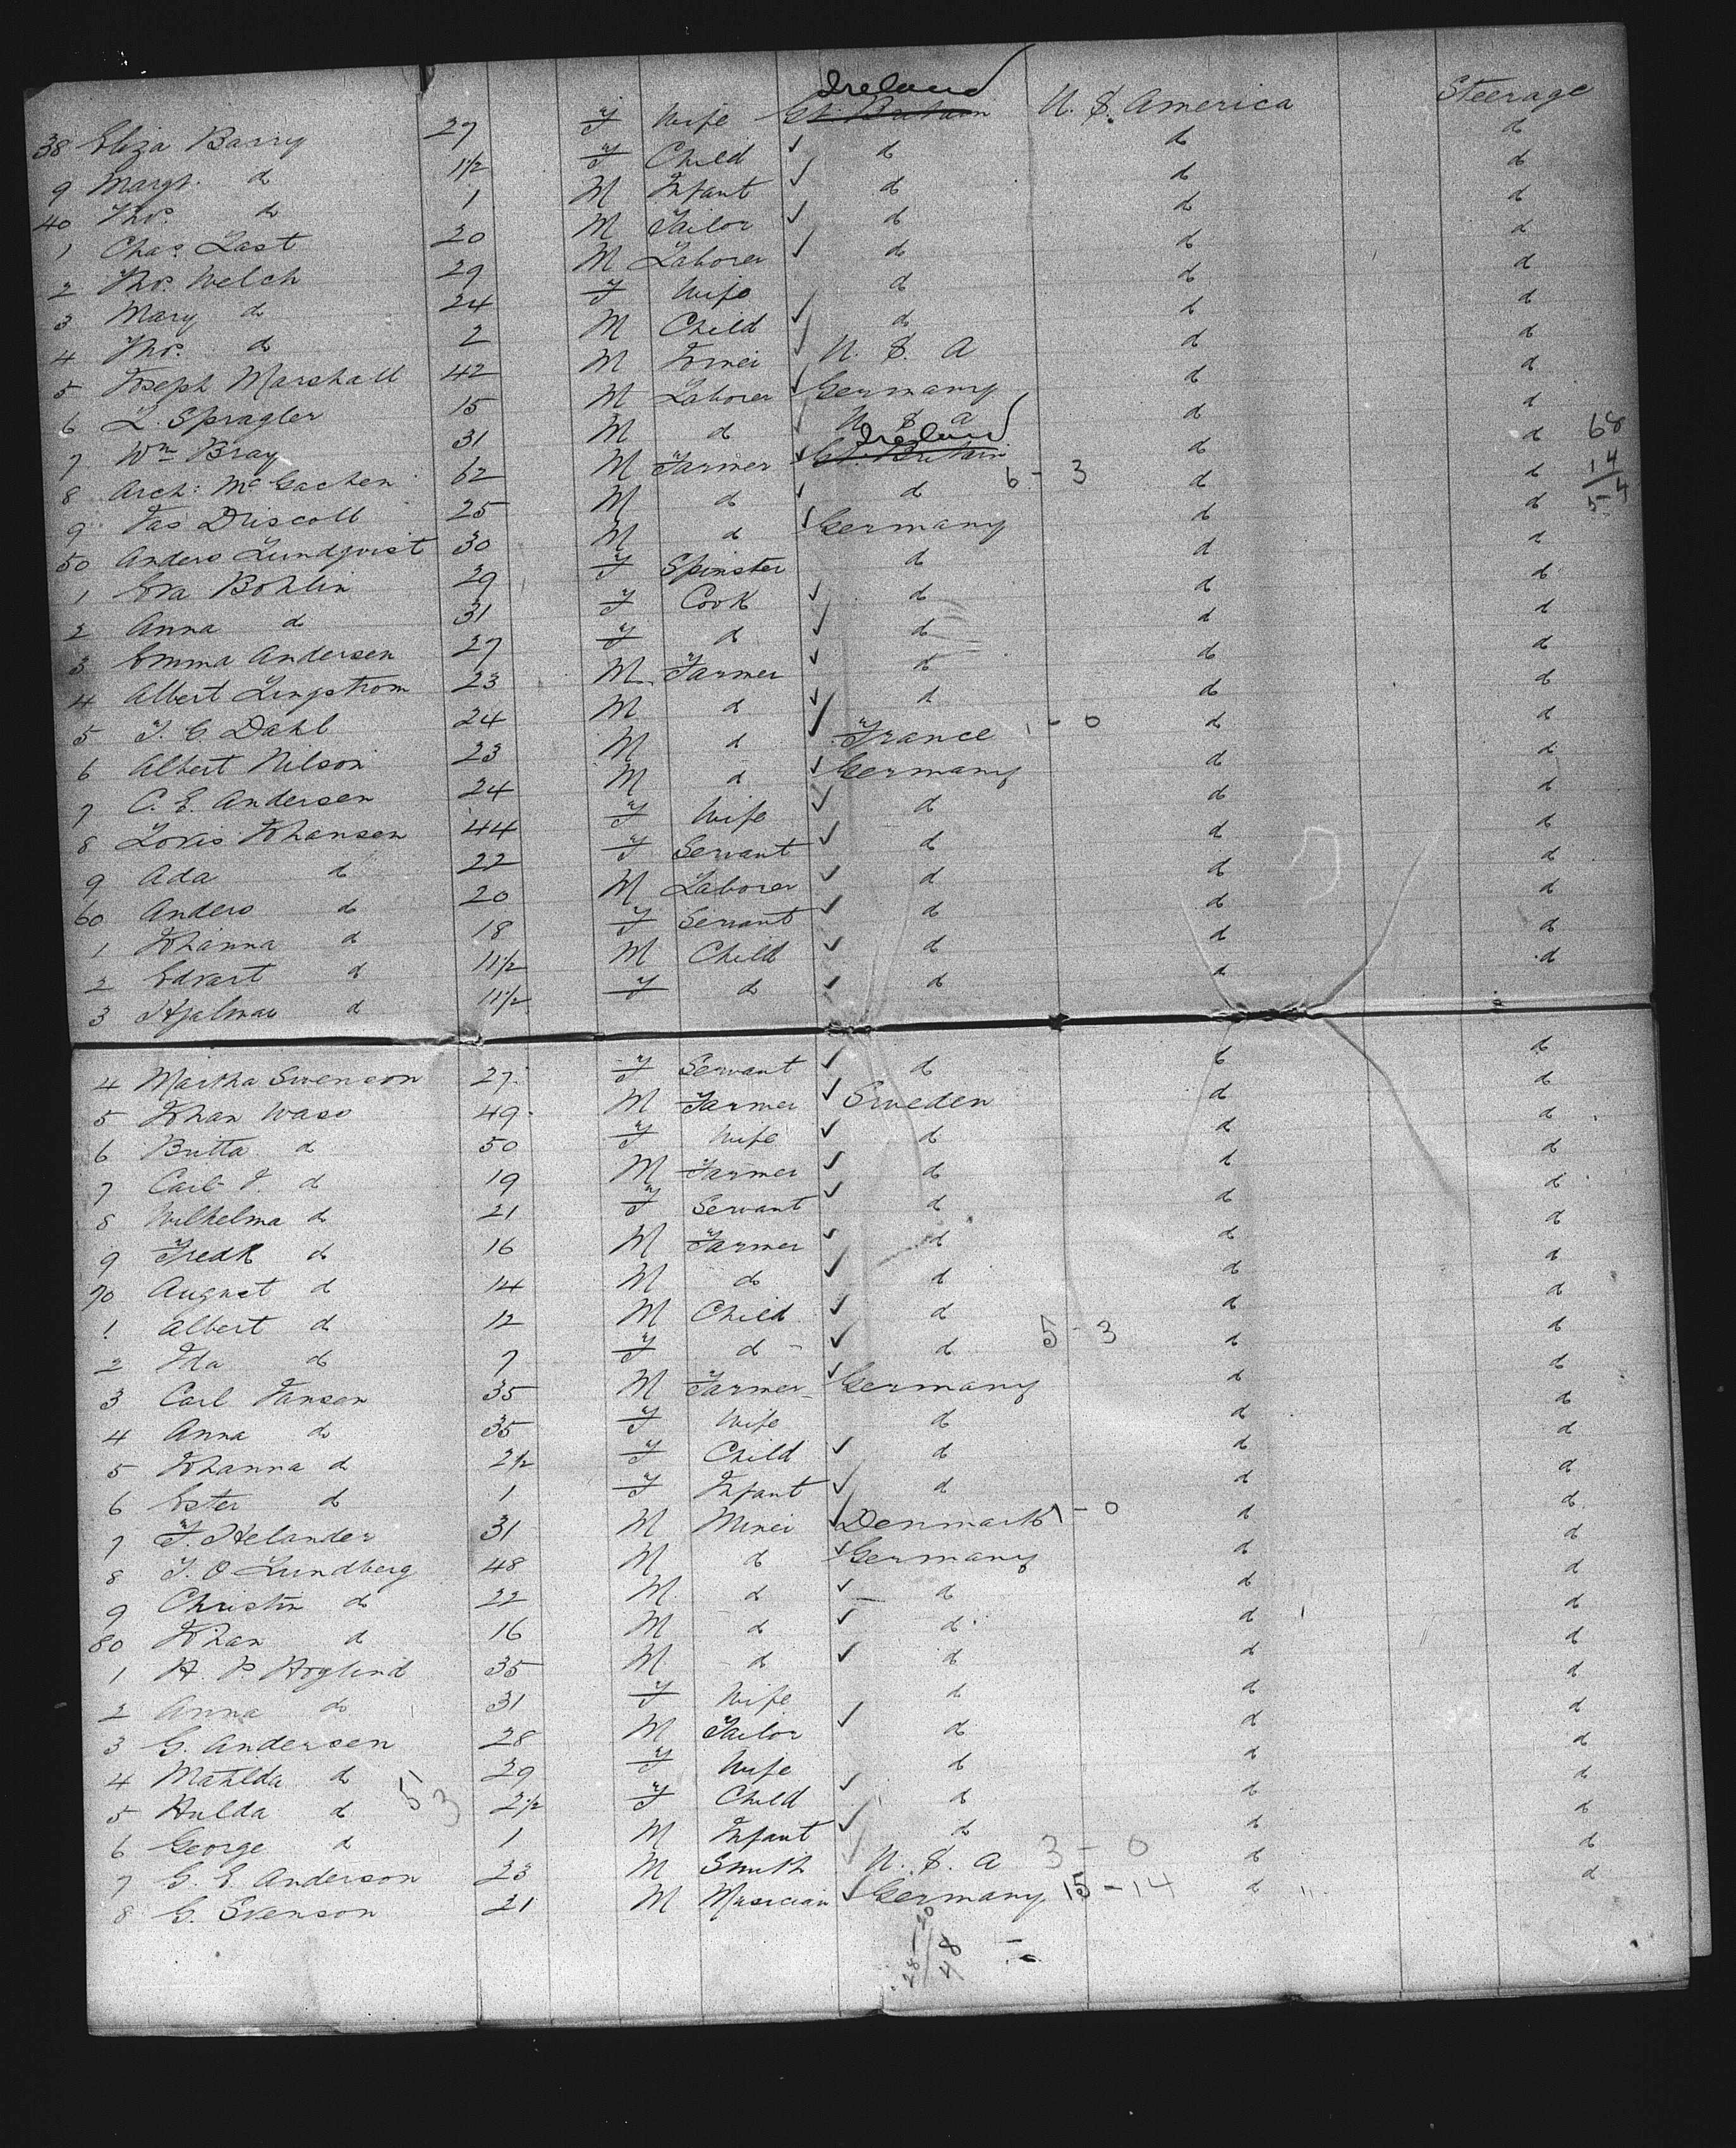 Ireland
38 Eliza Barry 27 F Wife Gt. Britain U. S. America Steerage
9 Margt. d 1 1/2 F Child d d d
40 Thos. d 1 M Infant d d d
1 Chas. Last 20 M Tailor d d d
2 Thos. Welch 29 M Laborer d d d
3 Mary d 24 F Wife d d d
4 Thos. d 2 M Child d d d
5 Joseph Marshall 42 M U. S. A d d
6 L. Spragler 15 M Laborer Germany d d
7 Wm Bray 31 M d U S A d d
Ireland
8 Arch: McGachen 62 M Farmer Gt. Britain d d 68
9 Jas Driscoll 25 M d d 6 - 3 d d 14
50 Anders Lundqvist 30 M d Germany d d 54
1 Eva Bohlin 29 F Spinster d d d
2 Anna d 31 F Cook d d d
3 Emma Andersen 27 F d d d d
4 Albert Lingstrom 23 M Farmer d d d
5 J. C Dahl 24 M d d d d
6 Albert Nilson 23 M d France 1 - 0 d d
7 C. E. Andersen 24 M d Germany d d
8 Lovis Johansen 44 F Wife d d d
9 Ada d 22 F Servant d d d
60 Anders d 20 M Laborer d d d
1 Johanna d 18 F Servant d d d
2 Edvart d 11 1/2 M Child d d d
3 Hjalmar d 11 1/2 F d d d d
4 Martha Swenson 27 F Servant d d d
5 Johan Waso 49 M Farmer Sweden d d
6 Britta d 50 F Wife d d d
7 Carl J. d 19 M Farmer d d d
8 Wilhelma d 21 F Servant d d d
9 Fredk d 16 M Farmer d d d
70 August d 14 M d d d d
1 Albert d 12 M Child d d d
2 Ida d 7 F d d 5 - 3 d d
3 Carl Jansen 35 M Farmer Germany d d
4 Anna d 35 F Wife d d d
5 Johanna d 2 1/2 F Child d d d
6 Ester d 1 F Infant d d d
7 F. Helander 31 M Miner Denmark 1 - 0 d d
8 J. O Lundberg 48 M d Germany d d
9 Christin d 22 M d d d d
80 Johan d 16 M d d d d
1 H. P. Hoglund 35 M d d d d
2 Anna d 31 F Wife d d d
3 G. Andersen 28 M Tailor d d d
4 Mathlda d 29 F Wife d d d
5 Hulda d 5 3 2 1/2 F Child d d d
6 George d 1 M Infant d d d
7 G. E Anderson 23 M Smith U. S. A 3 - 0 d d
8 G. Svenson 21 M Musician Germany 15 - 14 d d
28 - 20
48